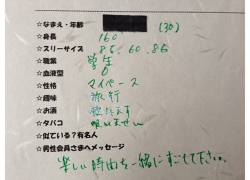 ☆なまえ・年齢 (30)
☆身長 160
☆スリーサイズ 86.60.86
☆職業 学生
☆血液型 O
☆性格 マイペース
☆趣味 旅行
☆お酒
☆タバコ 吸いません
☆似ている?有名人
☆男性会員さまへメッセージ
楽しい時間を一緒にすごして下さい。